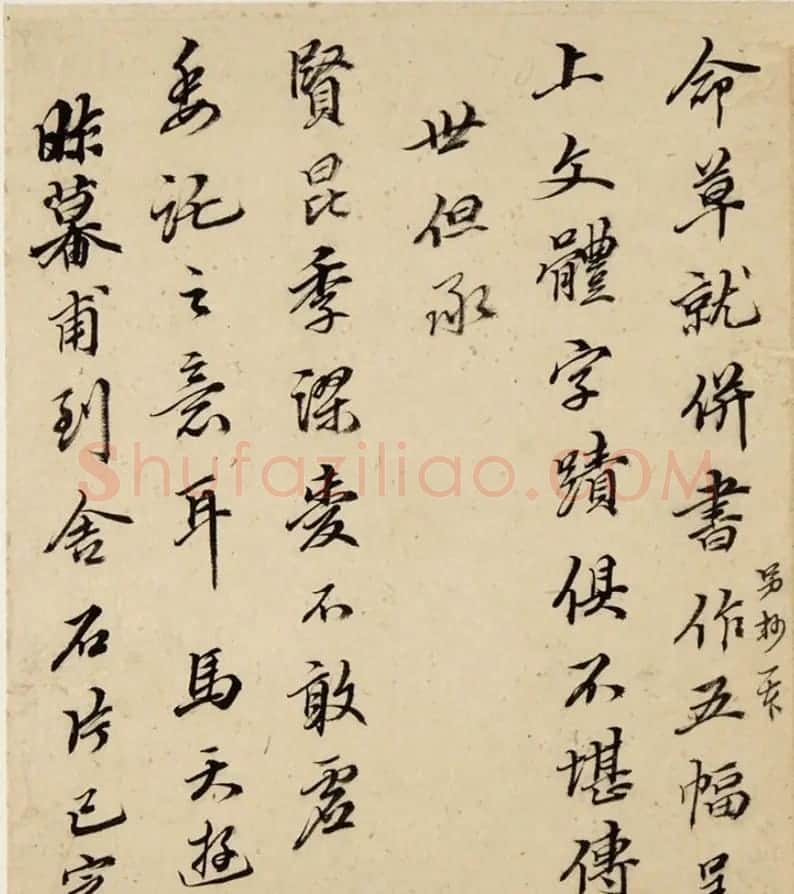 命草就併書作五幅呈
另抄一本
上文體字蹟俱不堪傳
世但承
賢昆季謬愛不敢虛
委託之意耳馬天游
昨暮甫到舍石片已完
Shufaziliao.COM